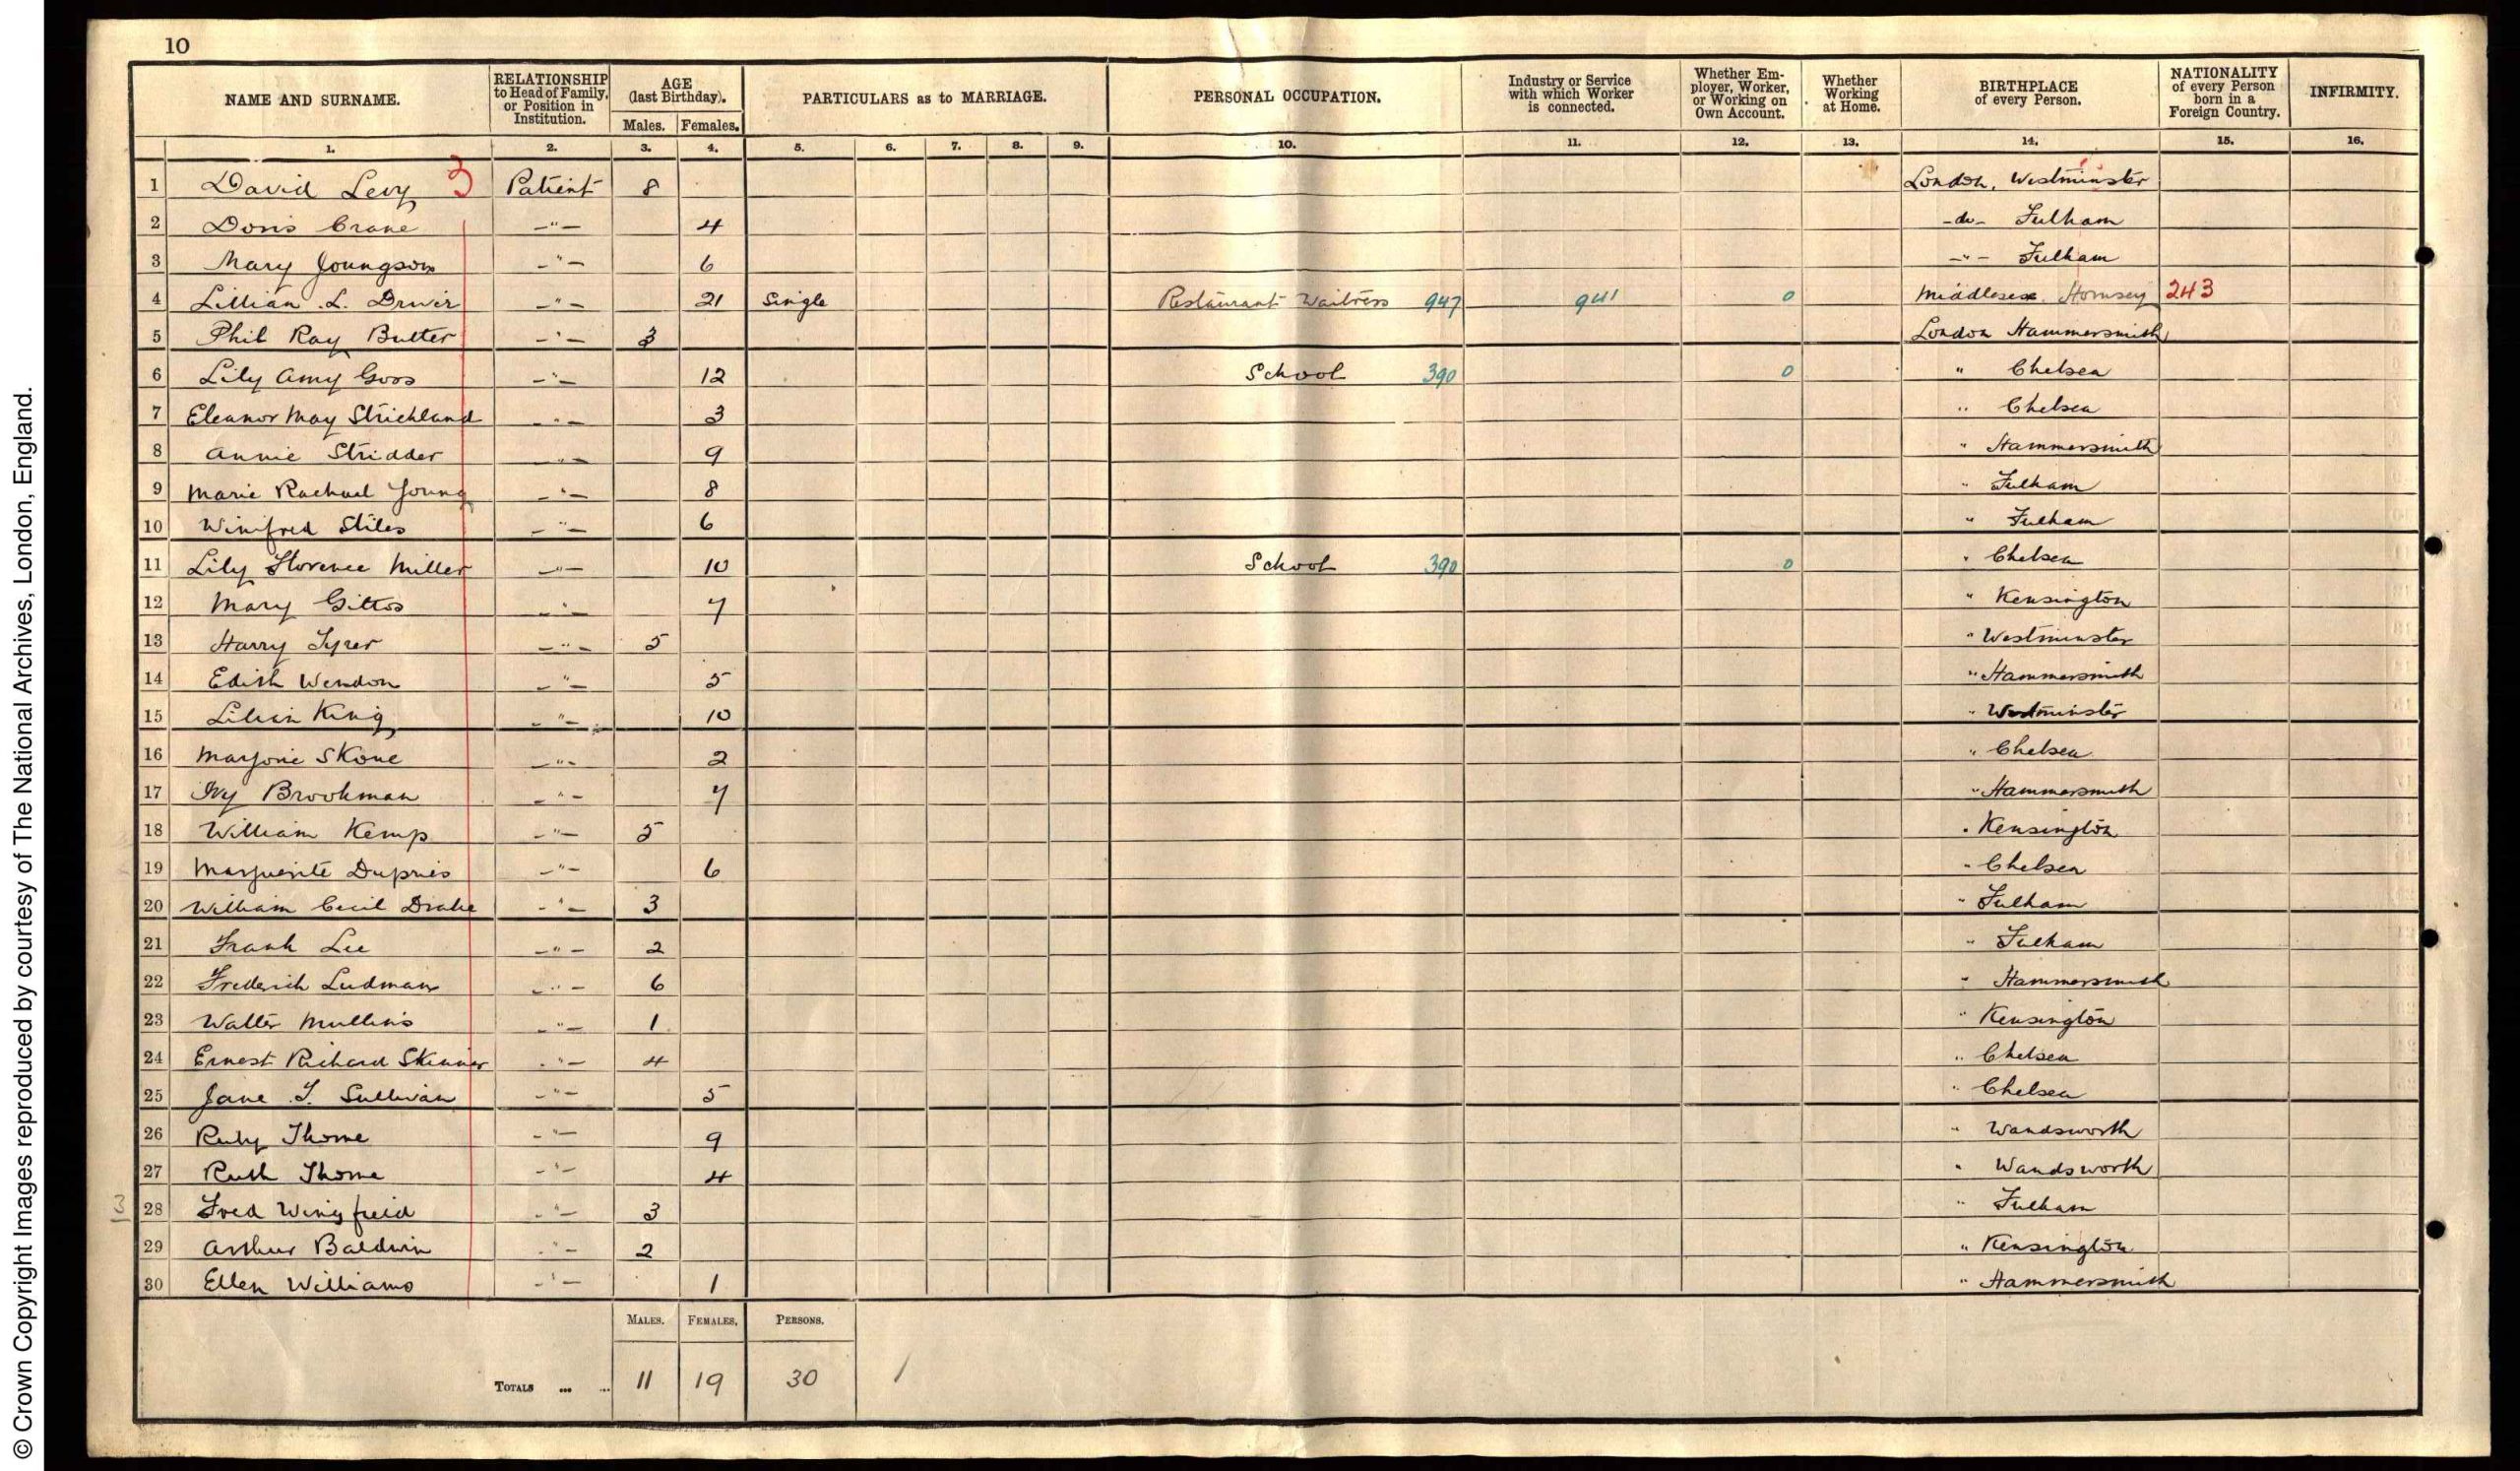 10
NAME AND SURNAME. RELATIONSHIP to Head of Family, or Position in Institution. AGE (last Birthday). Males. Females. PARTICULARS as to MARRIAGE. PERSONAL OCCUPATION. Industry or Service with which Worker is connected. Whether Employer, Worker, or Working on Own Account. Whether Working at Home. BIRTHPLACE of every Person. NATIONALITY of every Person born in a Foreign Country. INFIRMITY.
1. 2. 3. 4. 5. 6. 7. 8. 9. 10. 11. 12. 13. 14. 15. 16.
1 David Levy 3 Patient 8 London, Westminster
2 Doris Crane -"- 4 -do- Fulham
3 Mary Youngson -"- 6 -"- Fulham
4 Lillian L. Driver -"- 21 Single Restaurant Waitress 947 941 0 Middlesex. Hornsey 243
5 Phil Ray Butter -"- 3 London Hammersmith
6 Lily Amy Goos -"- 12 School 390 0 " Chelsea
7 Eleanor May Strickland -"- 3 " Chelsea
8 Annie Stridder -"- 9 " Hammersmith
9 Marie Rachael Young -"- 8 " Fulham
10 Winifred Stiles -"- 6 " Fulham
11 Lily Florence Miller -"- 10 School 390 0 " Chelsea
12 Mary Gittos -"- 7 " Kensington
13 Harry Tyrer -"- 5 " Westminster
14 Edith Wendon -"- 5 " Hammersmith
15 Lilian King -"- 10 " Westminster
16 Marjorie Skone -"- 2 " Chelsea
17 Ivy Brookman -"- 7 " Hammersmith
18 William Kemp -"- 5 " Kensington
19 Marguerite Dupries -"- 6 " Chelsea
20 William Cecil Drake -"- 3 " Fulham
21 Frank Lee -"- 2 " Fulham
22 Frederick Ludman -"- 6 " Hammersmith
23 Walter Mullins -"- 1 " Kensington
24 Ernest Richard Skinner -"- 4 " Chelsea
25 Jane T. Sullivan -"- 5 " Chelsea
26 Ruby Thorne -"- 9 " Wandsworth
27 Ruth Thorne -"- 4 " Wandsworth
3 28 Fred Wingfield -"- 3 " Fulham
29 Arthur Baldwin -"- 2 " Kensington
30 Ellen Williams -"- 1 " Hammersmith
MALES. FEMALES. PERSONS.
TOTALS ... ... 11 19 30 /
© Crown Copyright Images reproduced by courtesy of The National Archives, London, England.